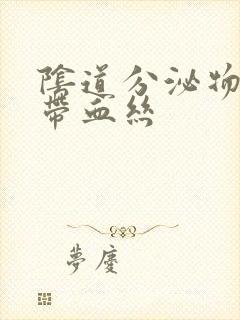 陰道分泌物
帶血絲
夢慶